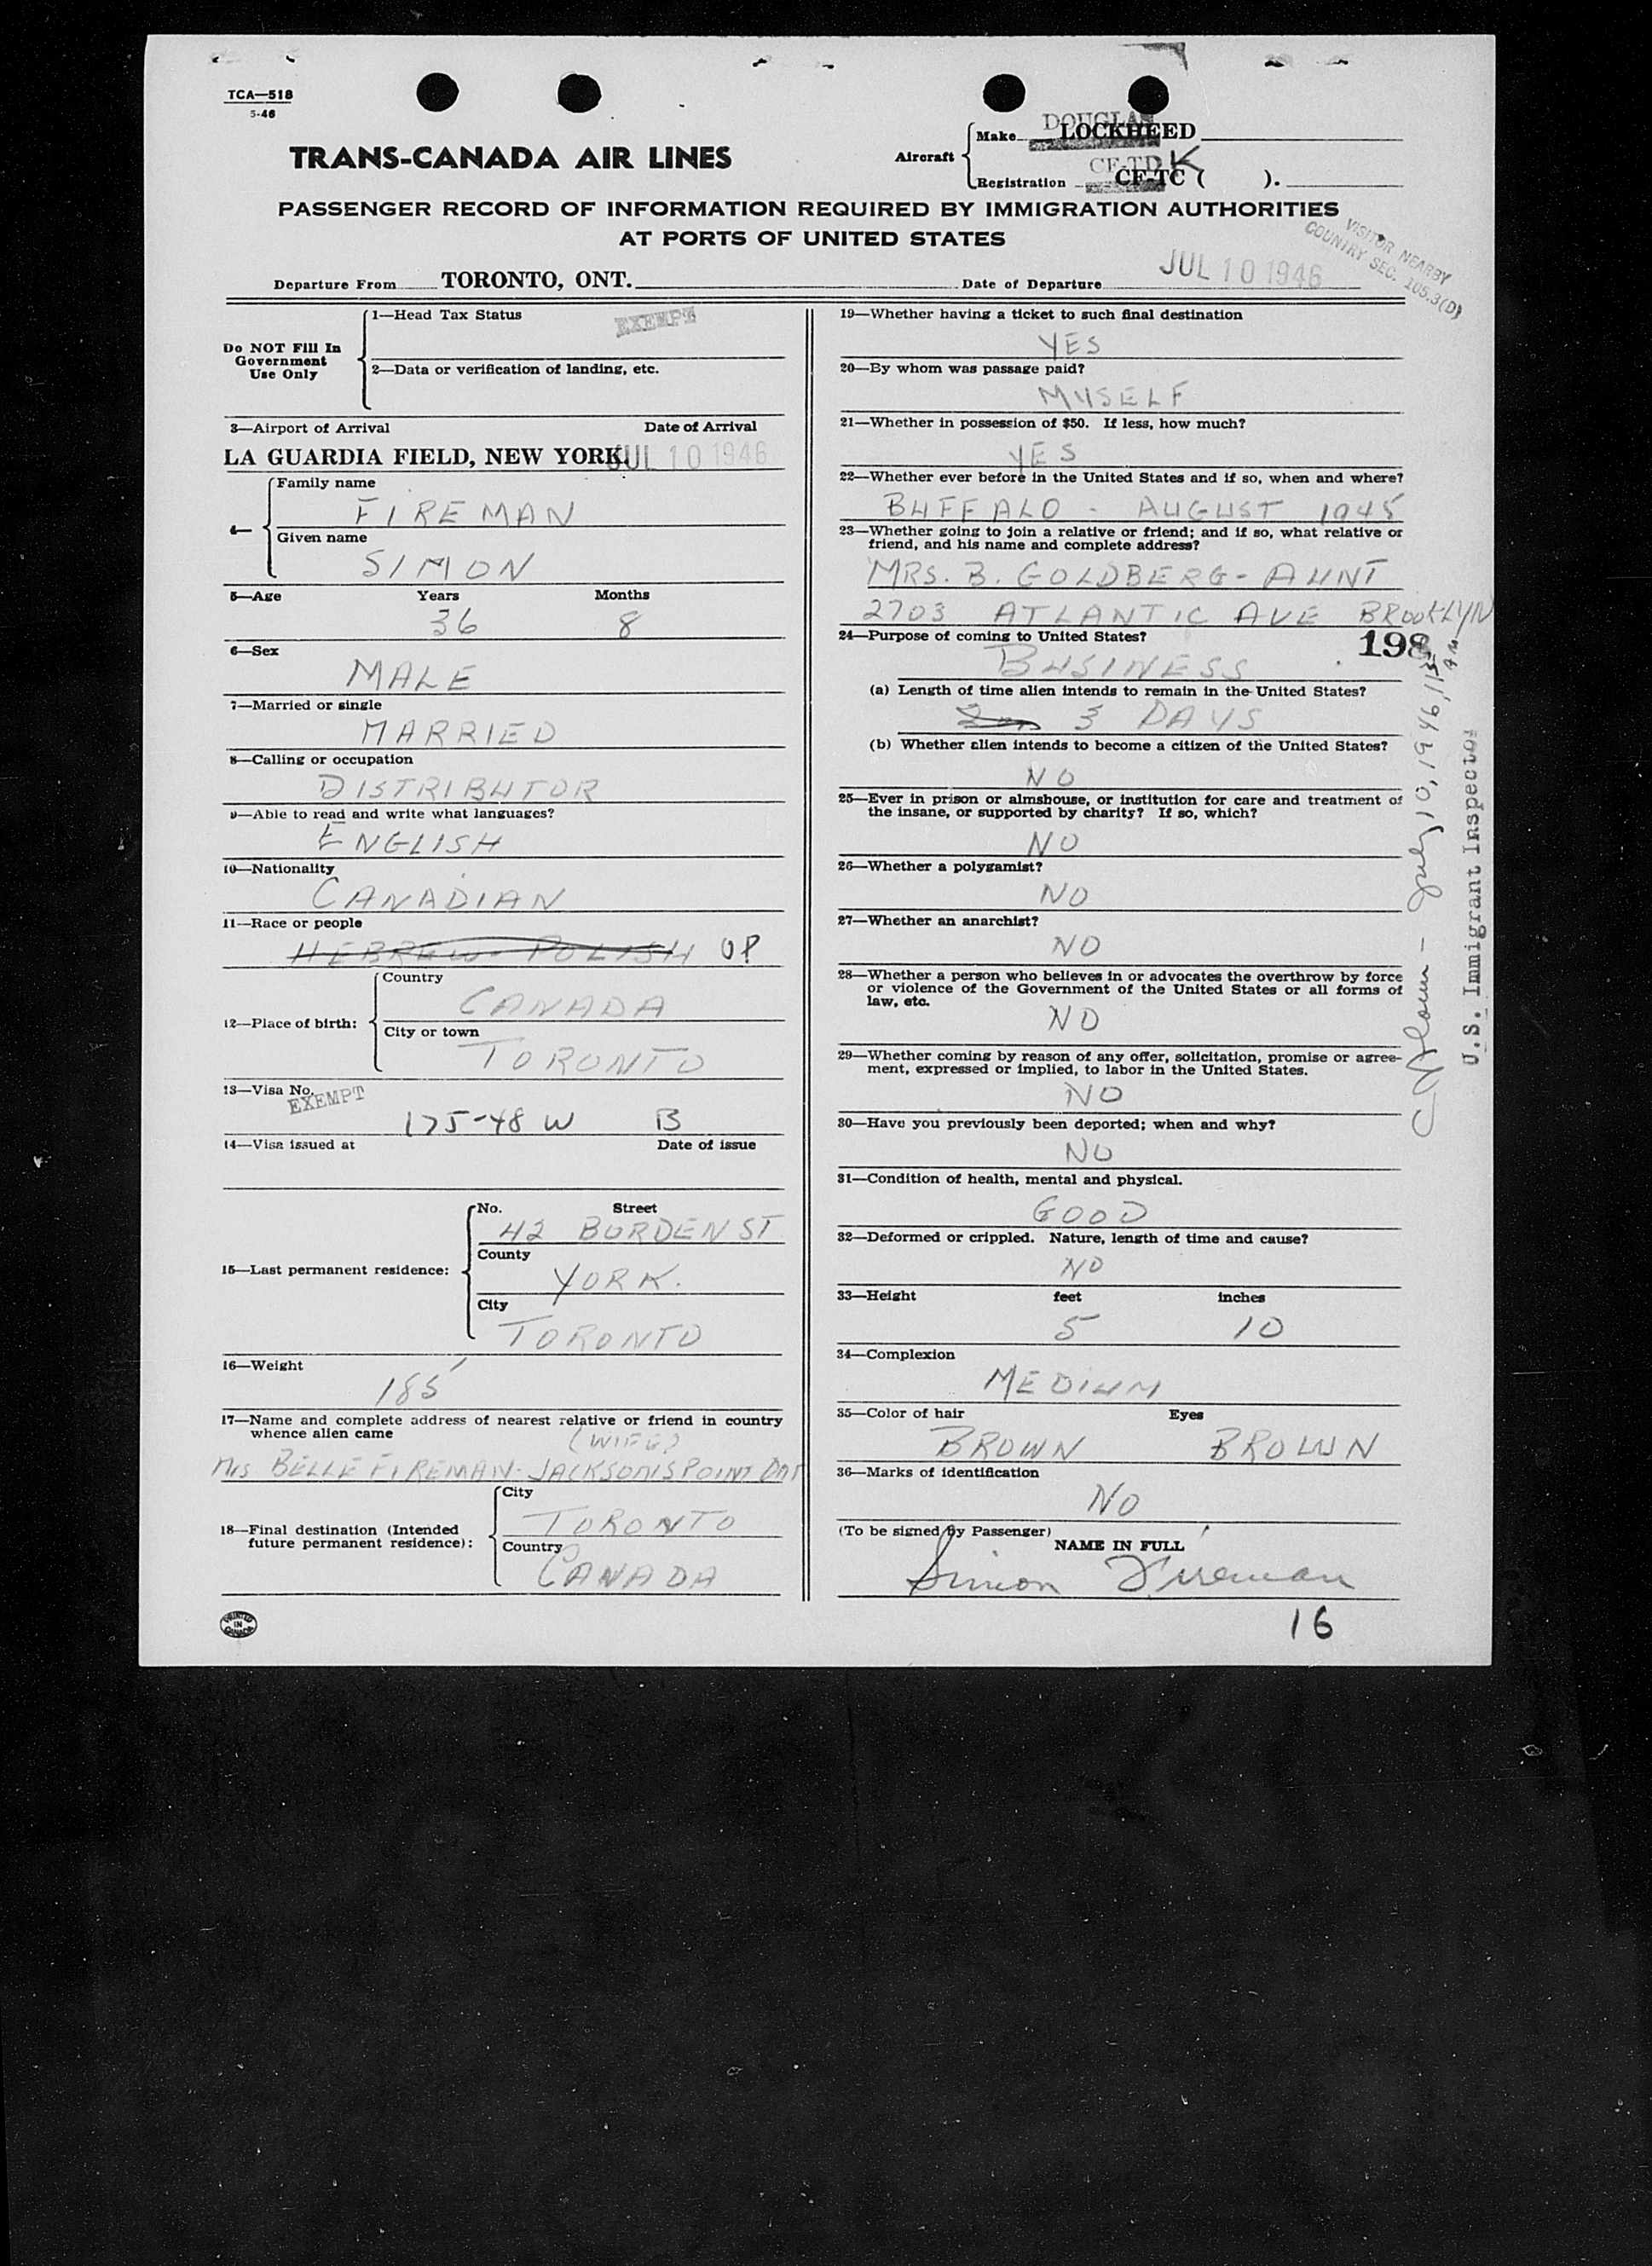 TCA—518
5-46
TRANS-CANADA AIR LINES
Aircraft
Make DOUGLAS LOCKHEED
Registration CF-TD K CF-TC ( ).
PASSENGER RECORD OF INFORMATION REQUIRED BY IMMIGRATION AUTHORITIES
AT PORTS OF UNITED STATES
VISITOR NEARBY
COUNTRY SEC. 105.3(D)
Departure From TORONTO, ONT. Date of Departure JUL 10 1946
Do NOT Fill In
Government
Use Only
1—Head Tax Status EXEMPT
2—Data or verification of landing, etc.
3—Airport of Arrival Date of Arrival
LA GUARDIA FIELD, NEW YORK. JUL 10 1946
4—
Family name
FIREMAN
Given name
SIMON
5—Age Years Months
36 8
6—Sex
MALE
7—Married or single
MARRIED
8—Calling or occupation
DISTRIBUTOR
9—Able to read and write what languages?
ENGLISH
10—Nationality
CANADIAN
11—Race or people
HEBREW - POLISH OP
12—Place of birth:
Country
CANADA
City or town
TORONTO
13—Visa No.
EXEMPT
175-48 W B
14—Visa issued at Date of issue
15—Last permanent residence:
No. Street
42 BORDEN ST
County
YORK.
City
TORONTO
16—Weight
185
17—Name and complete address of nearest relative or friend in country
whence alien came
(WIFE)
MRS BELLE FIREMAN - JACKSONS POINT ONT
18—Final destination (Intended
future permanent residence):
City
TORONTO
Country
CANADA
PRINTED
IN
CANADA
19—Whether having a ticket to such final destination
YES
20—By whom was passage paid?
MYSELF
21—Whether in possession of $50. If less, how much?
YES
22—Whether ever before in the United States and if so, when and where?
BUFFALO - AUGUST 1945
23—Whether going to join a relative or friend; and if so, what relative or
friend, and his name and complete address?
MRS. B. GOLDBERG - AUNT
2703 ATLANTIC AVE BROOKLYN
24—Purpose of coming to United States? 198
BUSINESS
(a) Length of time alien intends to remain in the United States?
3 DAYS
(b) Whether alien intends to become a citizen of the United States?
NO
25—Ever in prison or almshouse, or institution for care and treatment of
the insane, or supported by charity? If so, which?
NO
26—Whether a polygamist?
NO
27—Whether an anarchist?
NO
28—Whether a person who believes in or advocates the overthrow by force
or violence of the Government of the United States or all forms of
law, etc.
NO
29—Whether coming by reason of any offer, solicitation, promise or agree-
ment, expressed or implied, to labor in the United States.
NO
30—Have you previously been deported; when and why?
NO
31—Condition of health, mental and physical.
GOOD
32—Deformed or crippled. Nature, length of time and cause?
NO
33—Height feet inches
5 10
34—Complexion
MEDIUM
35—Color of hair Eyes
BROWN BROWN
36—Marks of identification
NO
(To be signed By Passenger)
NAME IN FULL
Simon Fireman
16
July 10, 1946
U.S. Immigrant Inspector